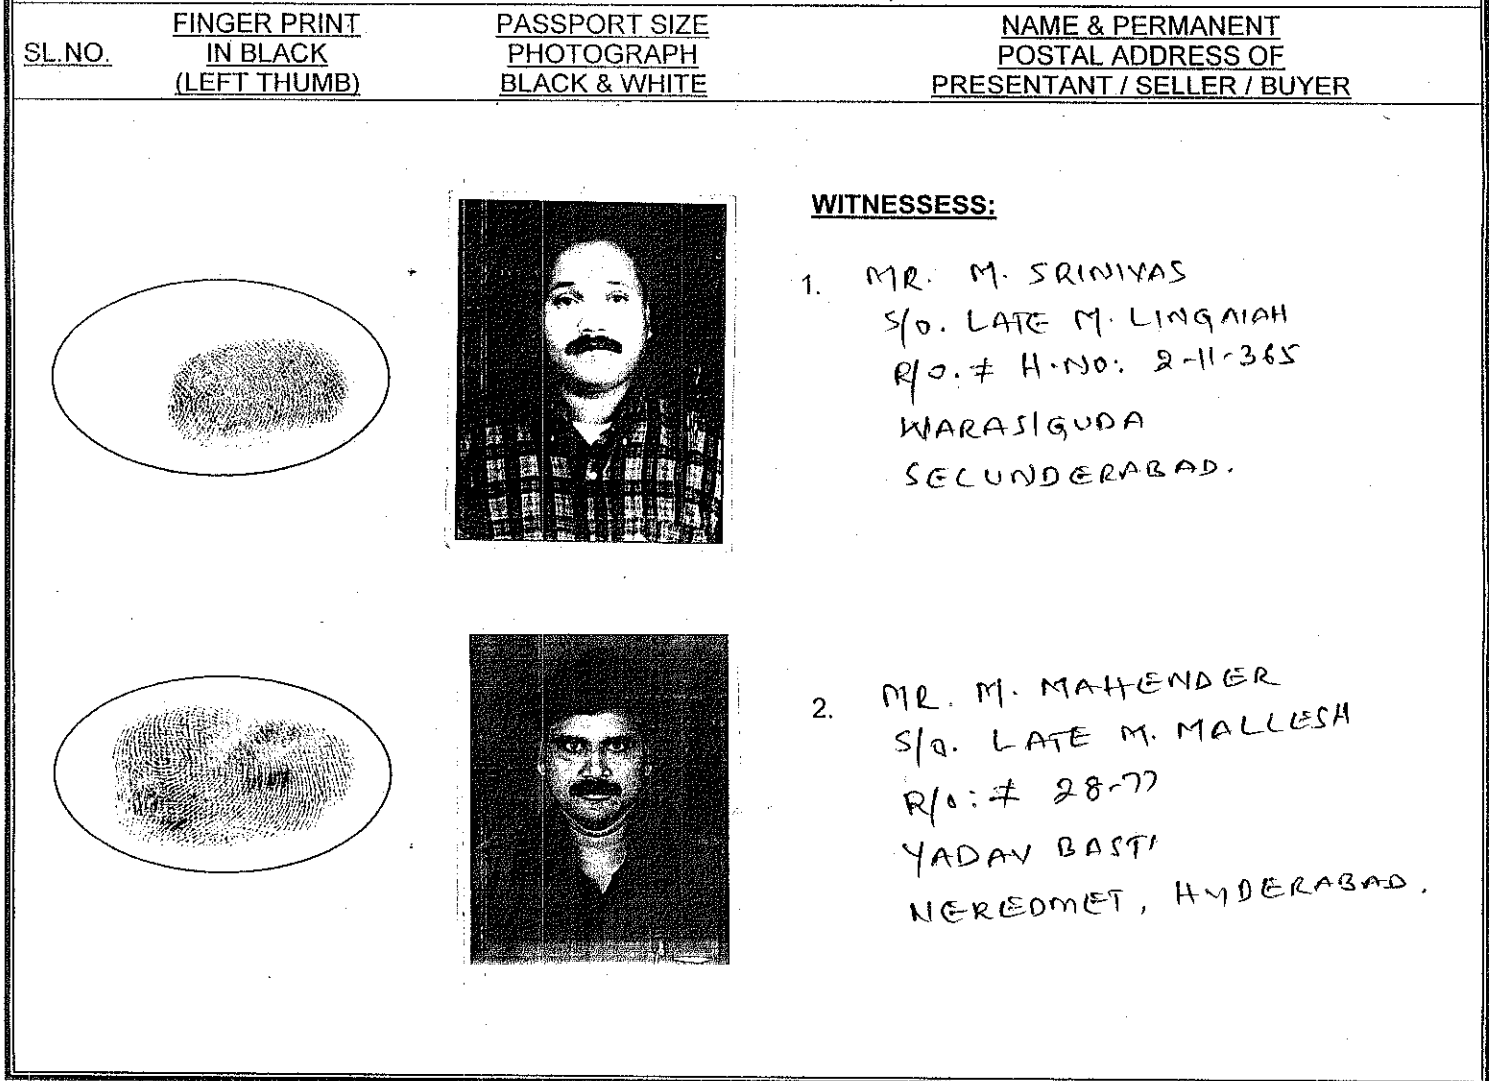 SL.NO.
FINGER PRINT
IN BLACK
(LEFT THUMB)
PASSPORT SIZE
PHOTOGRAPH
BLACK & WHITE
NAME & PERMANENT
POSTAL ADDRESS OF
PRESENTANT / SELLER / BUYER
WITNESSESS:
1. MR. M. SRINIVAS
S/o. LATE M. LINGAIAH
R/o. # H.NO: 2-11-365
WARASIGUDA
SECUNDERABAD.
2. MR. M. MAHENDER
S/o. LATE M. MALLESH
R/o: # 28-77
YADAV BASTI
NEREDMET, HYDERABAD.